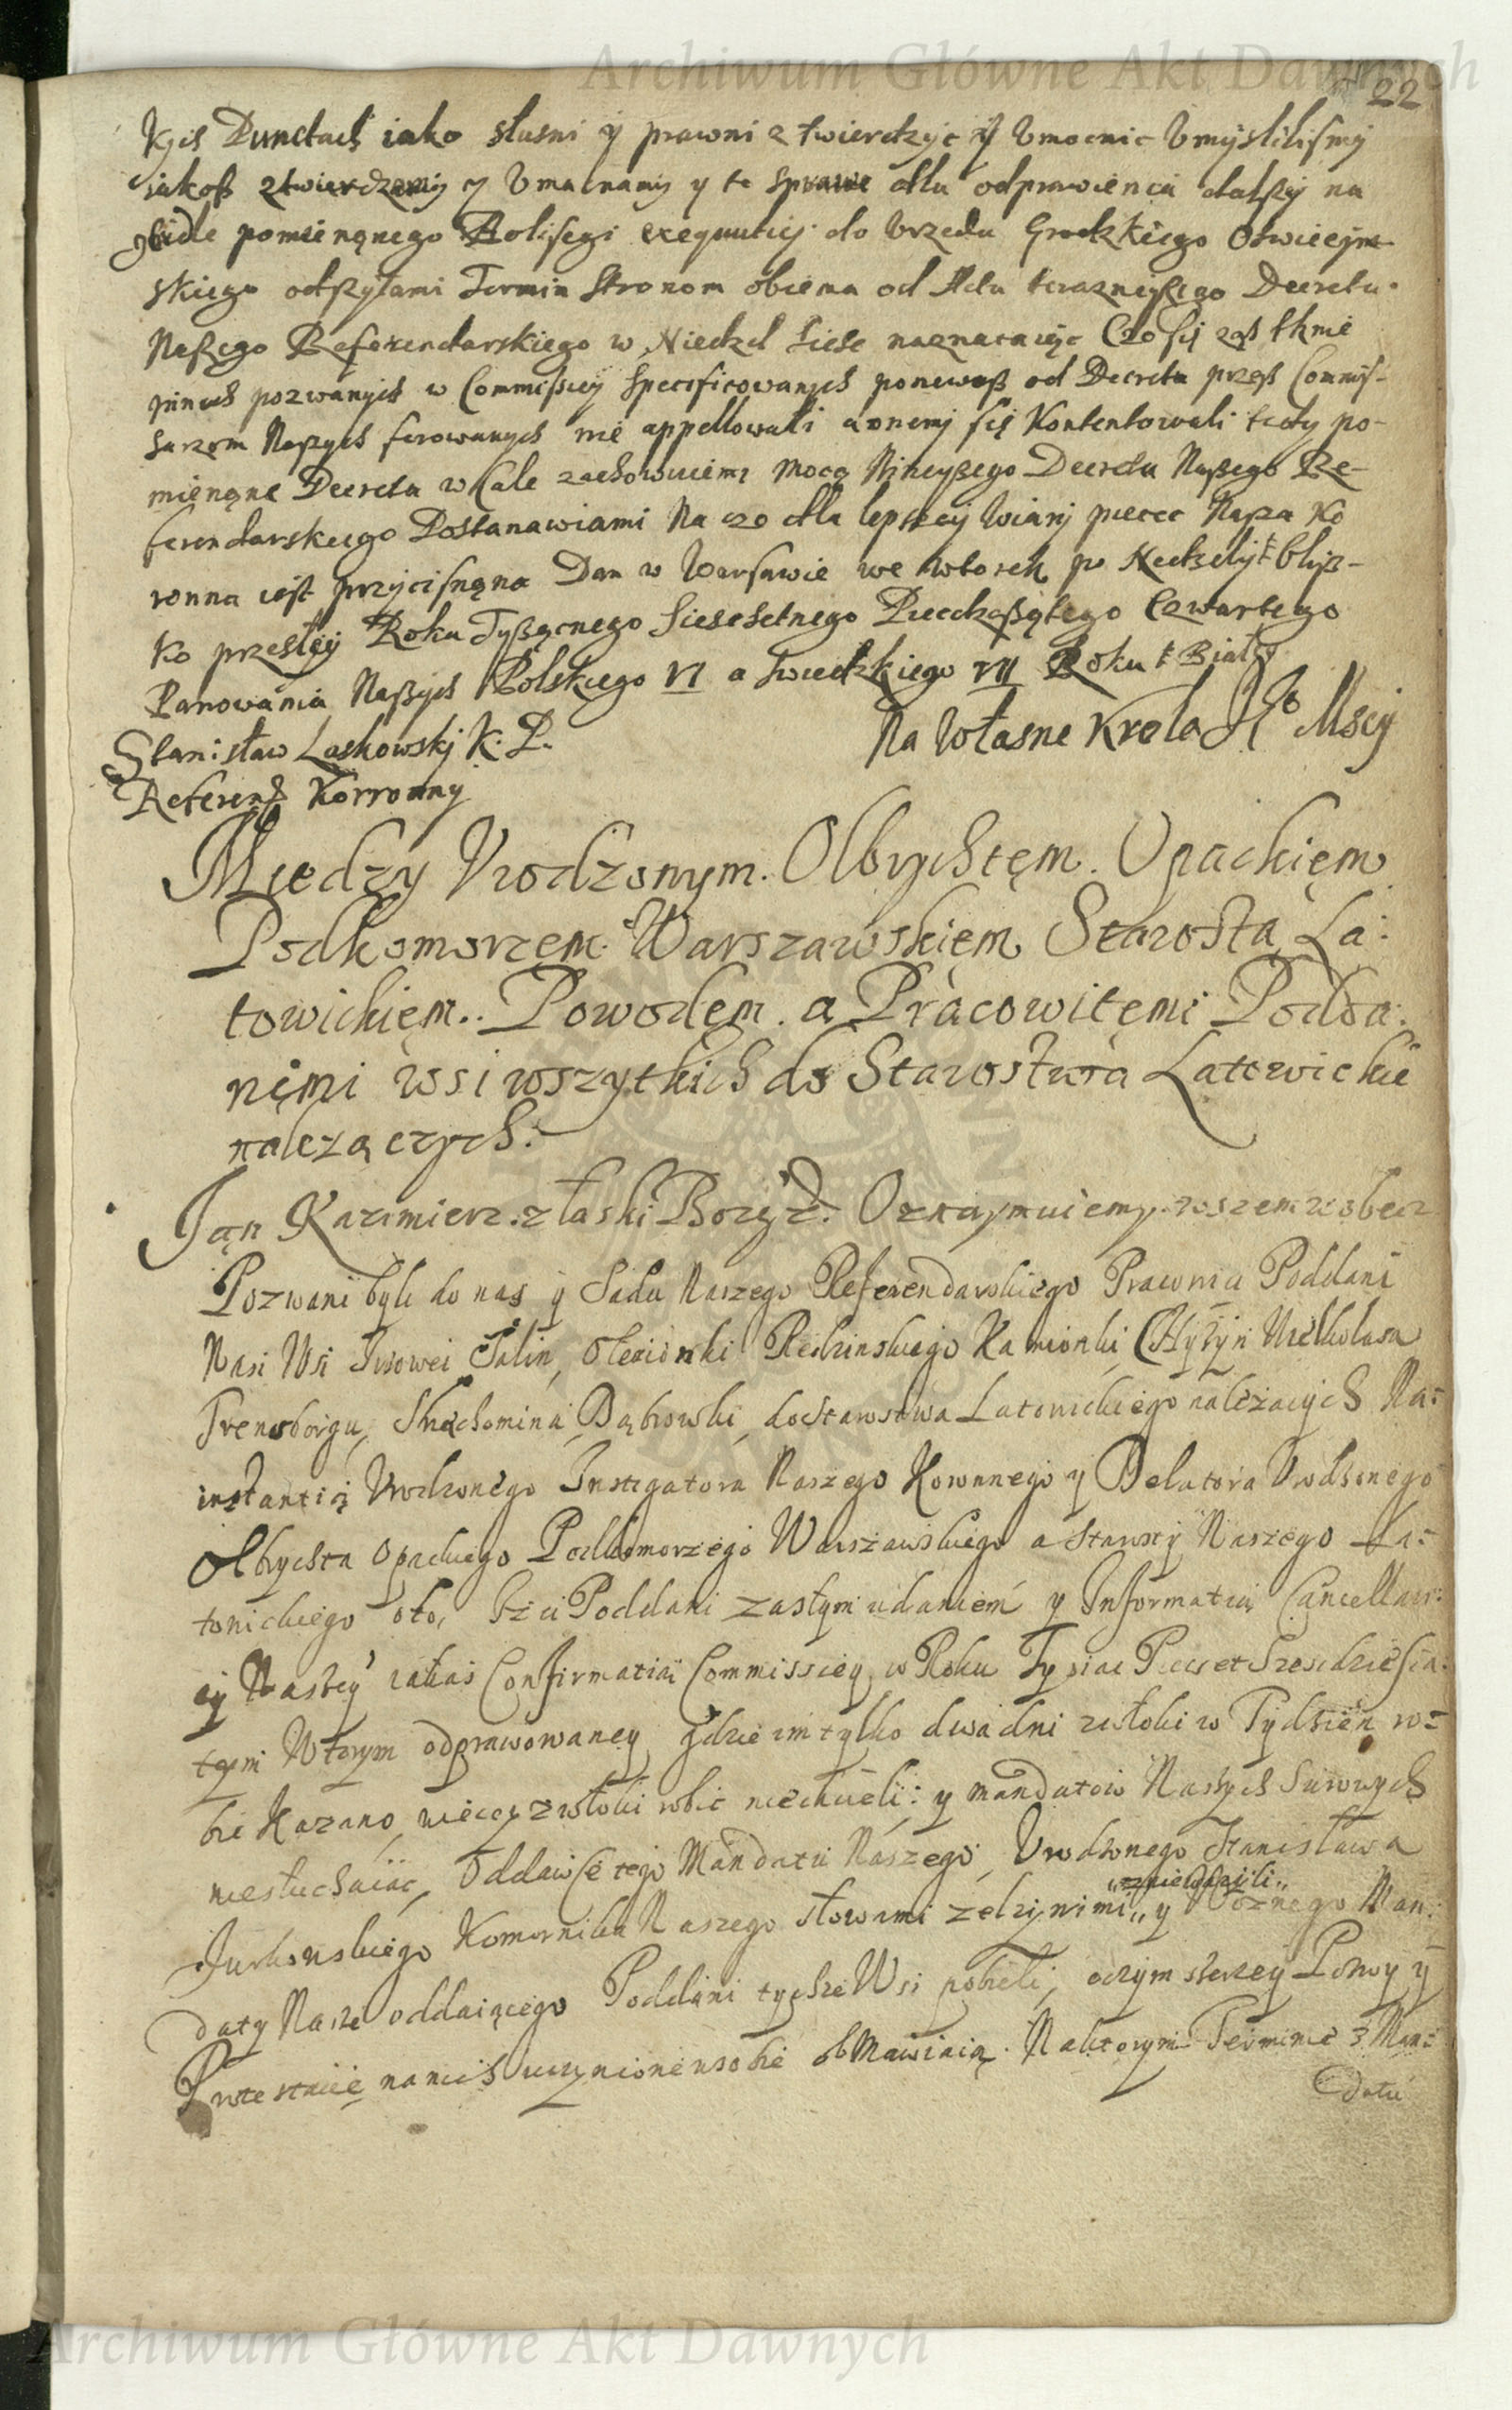 Archiwum Główne Akt Dawnych
22
Kych Punctach iako słusni y prawni ztwierdzyc y Vmocnic Vmyslilismy
iakosz ztwierdzamy y Vmacnamy y te sprawe dla odprawienia dalszy na
pomienąnego exequutiej do Vrzedu Grodzkiego Oswieejm-
skiego odszyłami Termin Stronom obiema od Actu terazneyszego Decretu
Naszego Referendarskiego w Niedzel siesc naznacaięc Czo się zas tknie
innych pozwanych w Commissiey specificowanych poniewasz od Decretu przesz Commis-
sarzom Naszych ferowanych nie appellowali a onemj się Kontentowali tedy po-
mienąne Decreta w Cale zachowuiemi mocą Ninieyszego Decretu Naszego Re-
ferendarskiego Postanawiami Na czo dla lepszej Wiarj piecec Nasza Ko
ronna iest przycisnąna Dan w Warsawie we wtorek po Niedzely bliz-
ko przesłey Roku Tysząnego Sieseśetnego Piecdzesząłego Czwartego
Panowania Naszych Polskiego VI a Swedzkiego VII Roku
Stanisław Laskowskj K. P. Na Własne Krola Jo Mscij
Referend Korronny
Miedzy Vrodzonym. Olbrychtęm. Opackięm
Podkomorzem. Warszawskiem Starostą La:
towickięm.. Powodęm. a Pracowitęmi Podda:
nęmi wsi wszytkich do Starostwa Latowickie
nalezączych:
Jan Kazimierz. z łaski Bozey &. Oznaymuiemy. wszem wobec
Pozwani byli do nas y Sadu Naszego Referendarskiego Prawnie Poddani
Nasi Wsi Iwowei Jalin, Olexionki Redzinskiego Kamionki Chyżyn Wielkolasa
Trensborgu, Stachomina, Dąbrowki, do starostwa Latowickiego należacych Na:
instantią Vrodzonego Instigatora Naszego Koronnego y Delatora Vrodzonego
Olbrychta Opackiego Podkomorzego Warszawskiego a Starosty Naszego La:
towickiego oto, Iż ci Poddani zasłym udaniem y Informatią Cancellari:
ey Naszey iakas Confirmatią Commissiey, w Roku Tysiac Piecset Szescdziesia:
tym Wtorym odprawowaney gdzie im tylko dwa dni zwłoki w Tydzień ro:
bic Kazano, wiecey zwłoki robic niechcieli: y mandatow Naszych Surowych
niesłuchaiąc, Oddawce tego Mandatu Naszego, Vrodzonego Stanisława
Jurkowskiego Komornika Naszego słowami zelzywimi „zniewazili„ y Woznego Man:
daty Nasze oddaiącego Poddani tychże Wsi pobieli, oczym szerzey Pozwy y
Protestacie na nich uczynione w sobie obmawiaią. Naktorym Terminie z Man:
datu
Archiwum Główne Akt Dawnych